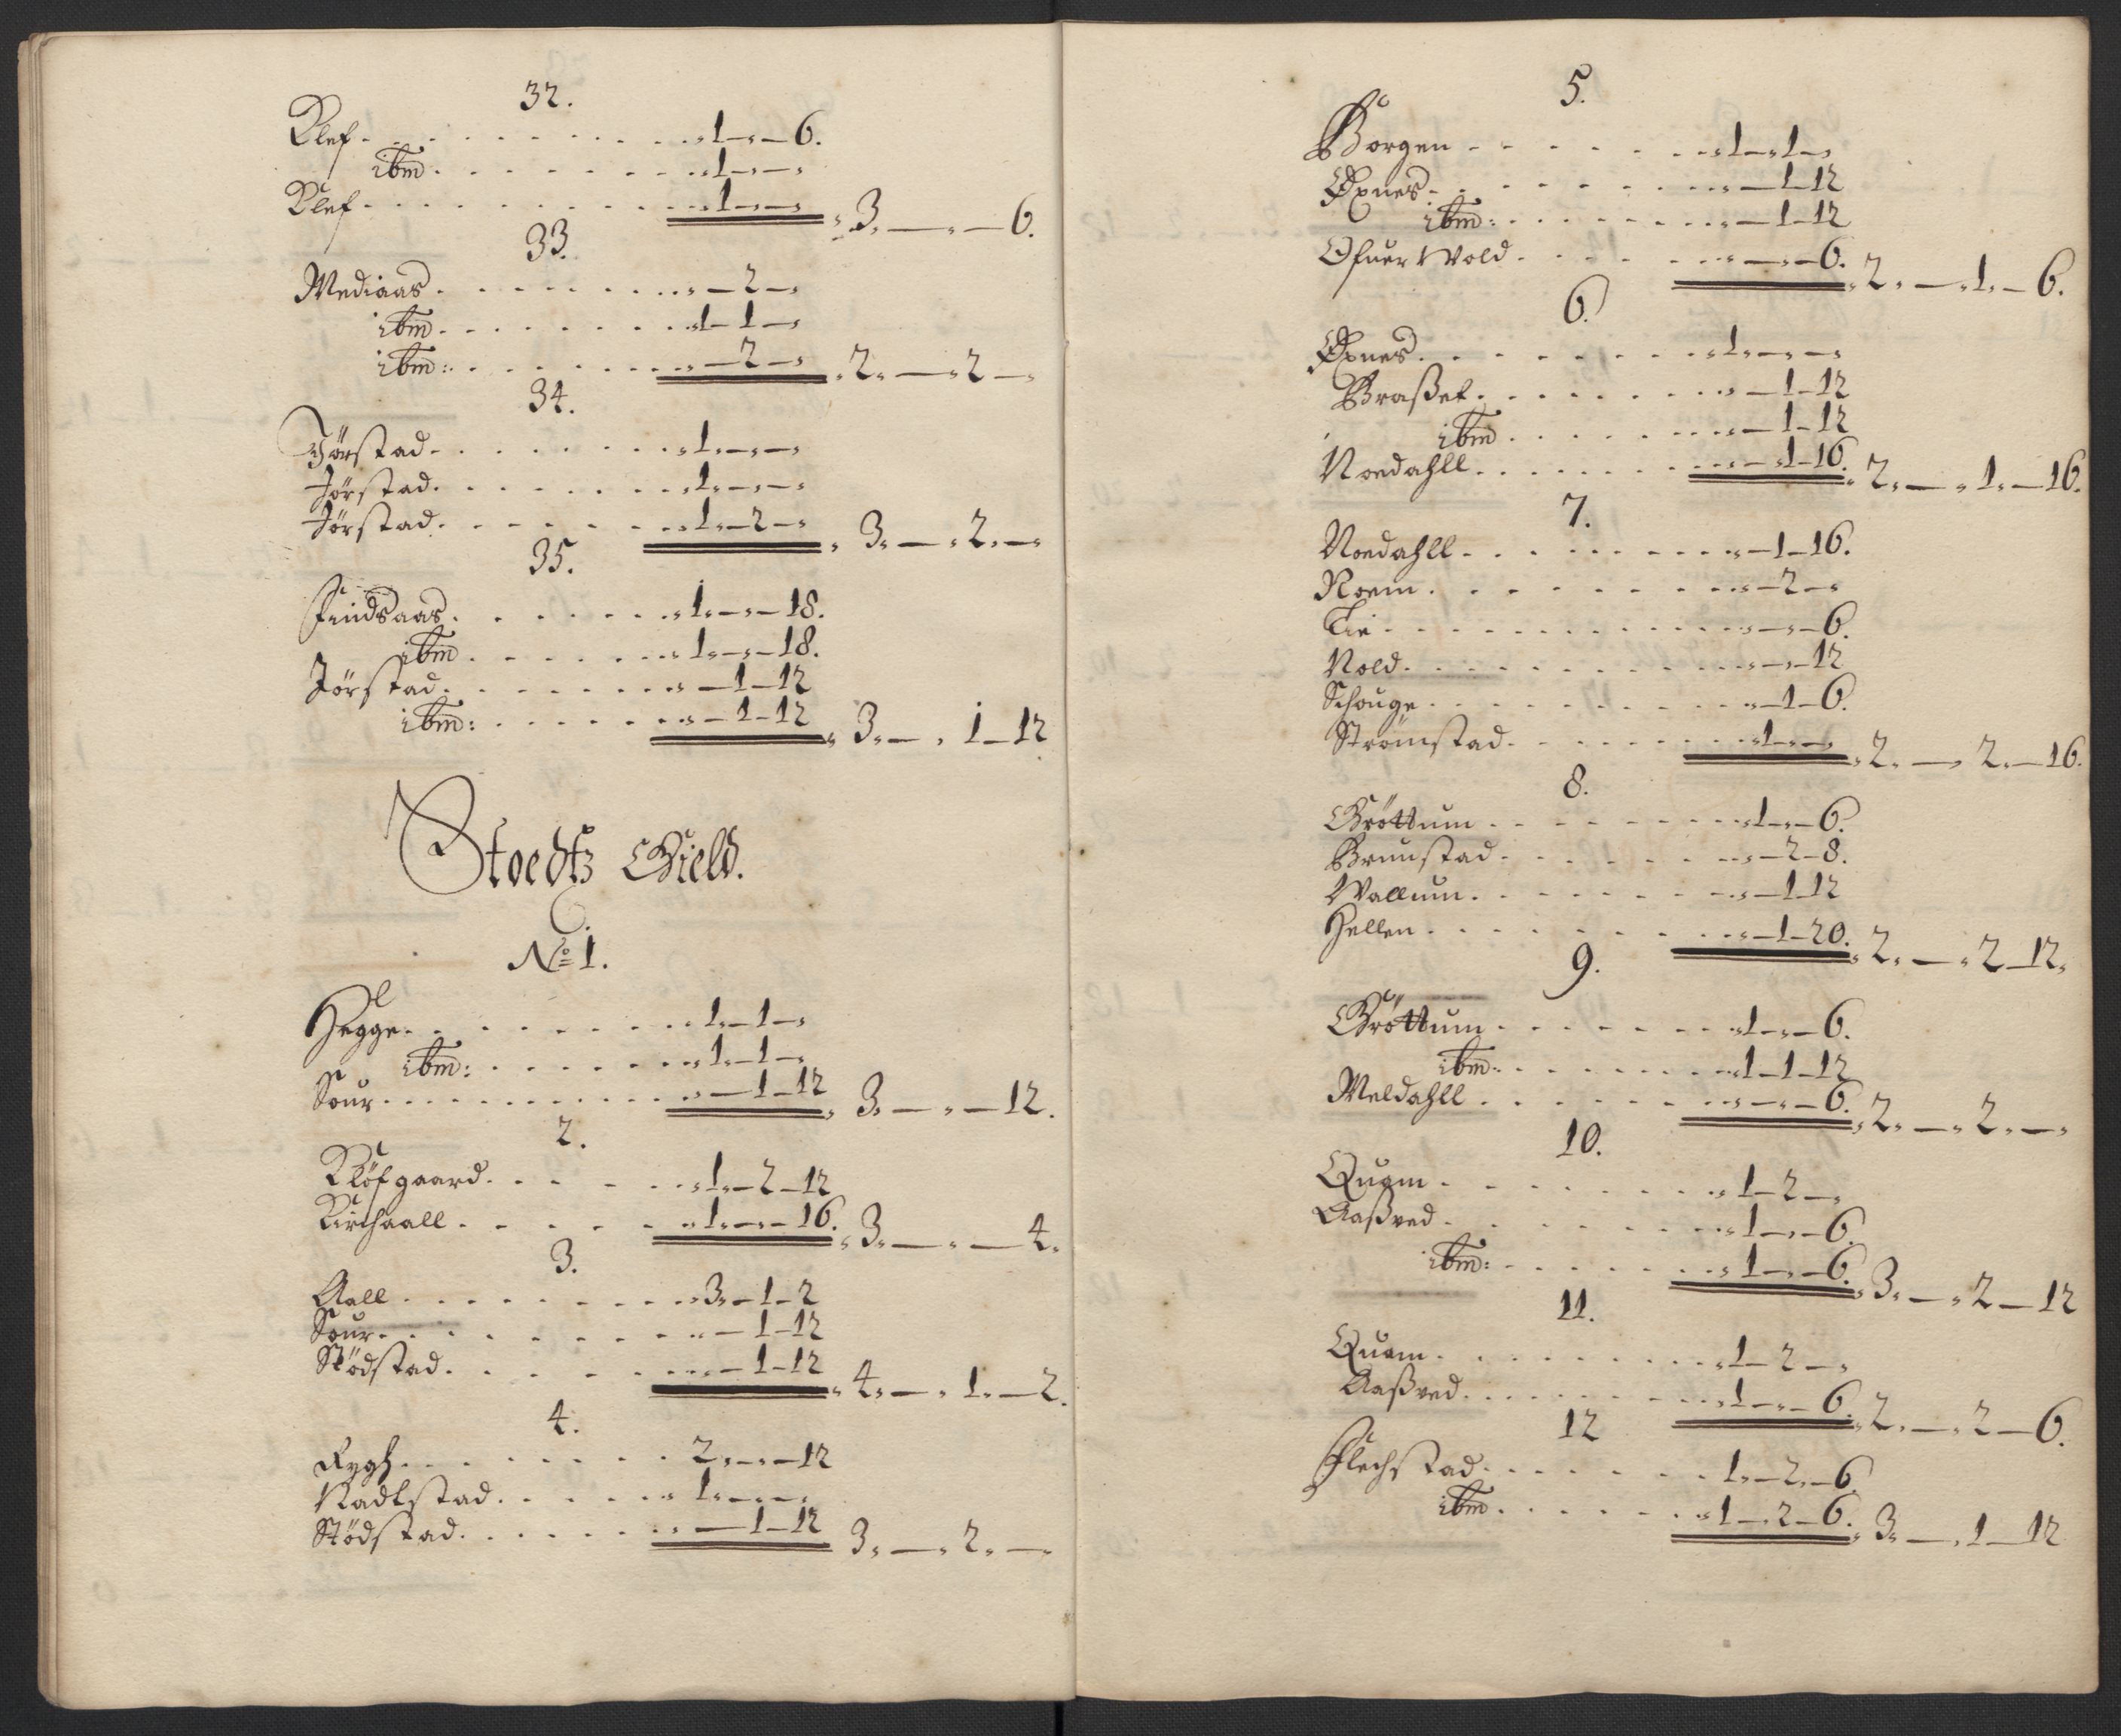 32.
Klef . . . . . . . . . . „ 1 — „ — 6.
ibm . . . . . . . . . „ 1 — „ — „
Klef . . . . . . . . . . „ 1 — „ — „ „ 3. — „ — 6.
33.
Mediaas . . . . . . . . „ — 2 — „
ibm . . . . . . . . . „ 1 — 1 — „
ibm: . . . . . . . . „ — 2 — „ „ 2. — „ 2 — „
34.
Jörstad . . . . . . . . „ 1. — „ — „
Jörstad . . . . . . . . „ 1. — „ — „
Jörstad . . . . . . . . „ 1. — 2 — „ „ 3. — „ 2. — „
35.
Findsaas . . . . . . . „ 1. — „ — 18.
ibm . . . . . . . „ 1. — „ — 18.
Jörstad . . . . . . . . „ — 1 — 12
ibm: . . . . . . . „ — 1 — 12 „ 3. — „ 1 — 12
Stoedtz Gield.
C.
No 1.
Hegge . . . . . . . . . 1. — 1 — „
ibm: . . . . . . . „ 1. — 1 — „
Sour . . . . . . . . . . „ — 1 — 12 „ 3. — „ — 12.
2.
Klöfgaard . . . . . . „ 1. — 2 — 12
Kirchaall . . . . . . „ 1. — „ — 16. „ 3. — „ — 4.
3.
Aall . . . . . . . . . „ 3. — 1 — 2
Sour . . . . . . . . . „ — 1 — 12
Stödstad . . . . . . . „ — 1 — 12 „ 4. — „ 1. — 2.
4.
Rygh . . . . . . . . 2. — „ — 12
Nadlstad . . . . . „ 1. — „ — „
Stödstad . . . . . . „ — 1 — 12 3. — „ 2. — „
5.
Borgen . . . . . . . „ 1 — „ 1 — „
Øxnes . . . . . . . . „ — 1 — 12
ibm: . . . . . . . „ — 1 — 12
Ofuer Wold . . . . . . „ — „ — 6. „ 2. — „ 1. — 6.
6.
Øxnes . . . . . . . . „ 1. — „ — „
Braßet . . . . . . . . „ — 1 — 12
ibm . . . . . . . „ — 1 — 12
Noedahll . . . . . . . „ — „ 1 — 16. „ 2. — „ 1. — 16.
7.
Noedahll . . . . . . . . „ — 1 — 16.
Roem . . . . . . . . . „ — 2 — „
Lie . . . . . . . . . . „ — „ — 6.
Nold . . . . . . . . . . „ — „ — 12
Schouge . . . . . . . . . „ — 1 — 6.
Strömstad . . . . . . . „ 1 — „ — „ „ 2. — „ 2. — 16.
8.
Gröttum . . . . . . . . „ 1 — „ — 6.
Brunstad . . . . . . . „ — 2 — 8.
Wallum . . . . . . . . „ — 1 — 12
Hellen . . . . . . . . . „ — 1 — 20. „ 2. — „ 2 — 12.
9.
Gröttum . . . . . . . „ 1 — „ — 6.
ibm: . . . . . . . „ 1 — 1 — 12
Meldahll . . . . . . . „ — „ — 6. „ 2. — „ 2. — „
10.
Quam . . . . . . . . „ 1 — 2 — „
Aaßved . . . . . . . . „ 1 — „ — 6.
ibm: . . . . . . . „ 1 — „ — 6. „ 3. — „ 2 — 12
11.
Quam . . . . . . . . . „ 1 — 2 — „
Aaßved . . . . . . . . „ 1 — „ — 6. „ 2. — „ 2 — 6.
12
Flechstad . . . . . . . 1. — 2. — 6
ibm . . . . . . . „ 1 — 2 — 6. „ 3. — „ 1 — 12